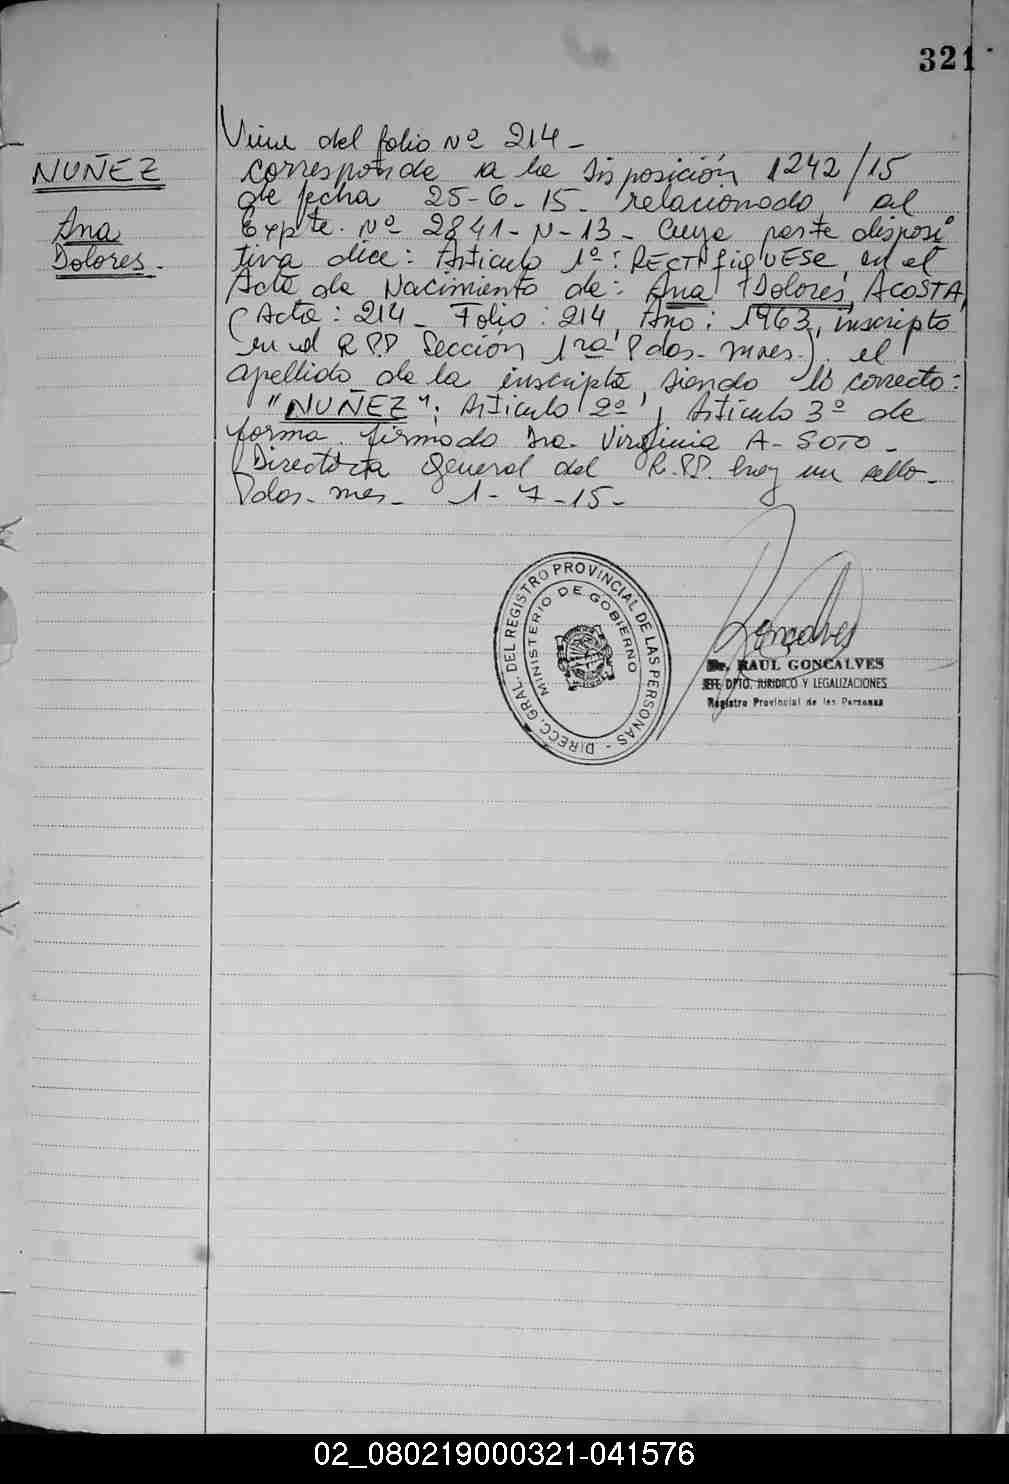 321
NUÑEZ
Ana
Dolores.
Viene del folio Nº 214 -
corresponde a la Disposición 1242/15
de fecha 25-6-15. relacionado al
Expte. Nº 2841-N-13- Cuya parte disposi
tiva dice: Artículo 1º: RECTIFIQUESE en el
Acta de Nacimiento de: Ana Dolores ACOSTA,
(Acta: 214 - Folio: 214, Año: 1963, inscripto
en el R.P.P Sección 1ra Pdas. ). el
apellido de la inscripta, siendo lo correcto:
"NUÑEZ"; Artículo 2º, Artículo 3º de
forma. firmado Dra. Virginia A. SOTO -
Directora General del R.P.P. hay un sello -
Pdas. 1-7-15-
DIRECC. GRAL. DEL REGISTRO PROVINCIAL DE LAS PERSONAS -
MINISTERIO DE GOBIERNO
Goncalves
Dr. RAUL GONCALVES
JEFE DPTO. JURIDICO Y LEGALIZACIONES
Registro Provincial de las Personas
02_080219000321-041576